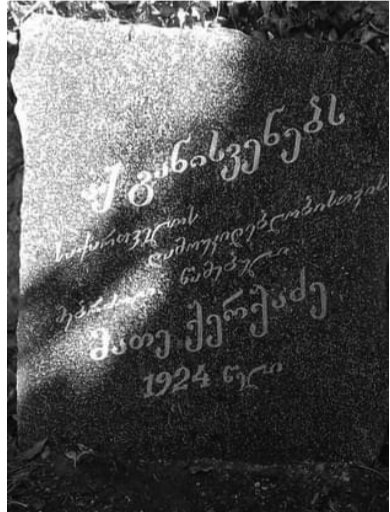 აქ განისვენებს
საქართველოს
დამოუკიდებლობისთვის
მებრძოლი წამებული
მათე ქერქაძე
1924 წელი